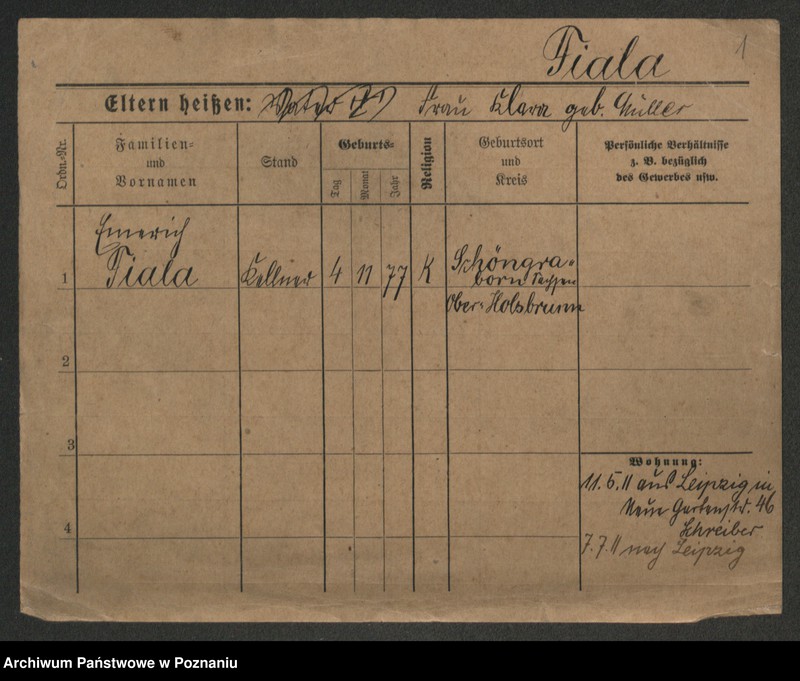 1
Fiala
Eltern heißen: Frau Klara geb. Müller
Ordn.-Nr.
Familien-
und
Vornamen
Stand
Geburts-
Tag
Monat
Jahr
Religion
Geburtsort
und
Kreis
Persönliche Verhältnisse
z. B. bezüglich
des Gewerbes usw.
Emerich
1 Fiala Kellner 4 11 77 K Schöngra-
born Sachsen
Ober-Holsbrunn
2
3
Wohnung:
11.5.11 aus Leipzig in
Neue Gartenstr. 46
Schreiber
4
7.7.11 nach Leipzig
Archiwum Państwowe w Poznaniu